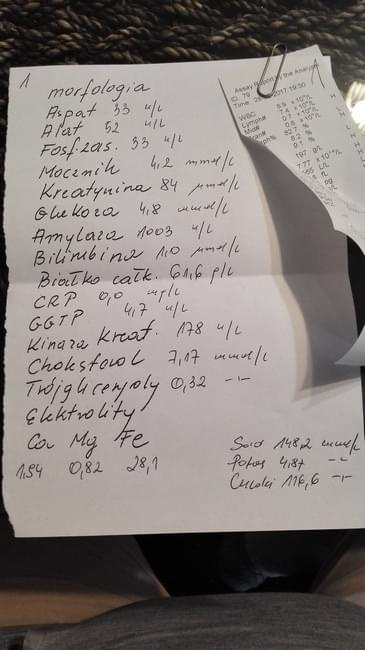 1
morfologia
Aspat 33 u/l
Alat 52 u/l
Fosfizas. 33 u/l
Mocznik 4,2 mmol/l
Kreatynina 84 μmol/l
Glukoza 4,8 mmol/l
Amylaza 1003 u/l
Bilirubina 1,0 μmol/l
Białko całk. 61,6 g/l
CRP 0,0 mg/l
GGTP 4,7 u/l
Kinaza Kreat. 178 u/l
Cholesterol 7,17 mmol/l
Trójglicerydy 0,32 -"-
Elektrolity
Ca Mg Fe
1,94 0,82 28,1
Sód 148,2 mmol/l
Potas 4,87 -"-
Chlorki 116,6 -"-
Assay Report by the Analyser
ID: 79
Time: 2017 19:30
WBC 8.9 x 10^9/L
Lymph# 7.4 x 10^9/L H
Mid# 0.7 x 10^9/L
0.8 x 10^9/L L
82.7 % H
8.2 %
9.1 %
197 g/L
7.77